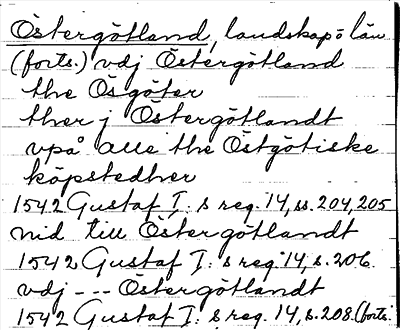 Östergötland, landskap o län
(forts.) vdj Östergötland
the Ösgöter
ther j Östergötlandt
vpå alle the Östgötiske
köpstedher
1542 Gustaf I: s reg. 14, ss. 204, 205
nid till Östergötlandt
1542 Gustaf I: s reg. 14, s. 206
vdj --- Östergötlandt
1542 Gustaf I: s reg. 14, s. 208. (forts.